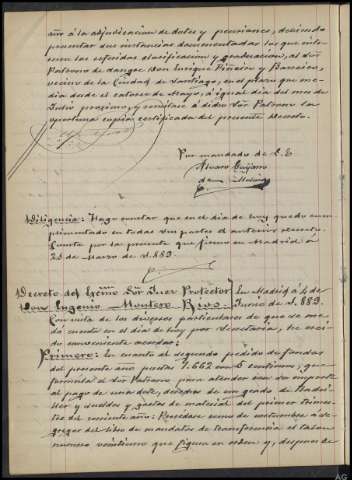 año á la adjudicacion de dotes y pensiones, debiendo
presentar sus instancias documentadas las que intere
sen las referidas clasificacion y graduacion, al Sor
Patrono de sangre Don Enrique Piñeiro y
vecino de la Ciudad de Santiago, en el plazo que me-
dia desde el catorce de Mayo, á igual dia del mes de
Julio proximo, y remitase á dicho Sor Patrono la
oportuna copia certificada del presente Decreto.
Por mandado de S.E
Alvaro
de Molina
Diligencia: Hago constar que en el dia de hoy quedo cum
plimentado en todas sus partes el anterior decreto.
Cuenta por la presente que firmo en Madrid á
de Marzo de 1.889.
Decreto del Excmo Sor Juez Protector
Don Eugenio Montero Rios.
En Madrid á 4 de
Junio de 1.889.
Con vista de los diversos particulares de que se me
dá cuenta en el dia de hoy por Secretaría, he veni
do conveniente acordar:
Primero: En cuanto al segundo pedido de fondos
del presente año pesetas 7.662 con 5 centimos, que
formula el Sor Patrono para atender con su importe
al pago de una dote, derechos de un grado de Bachi-
ller y sueldos y gastos de material del primer trimes-
tre del corriente año: Procédase como de costumbre á de-
gregar del libro de mandatos de transferencia el talon
numero veintiuno que figura en orden y, despues de